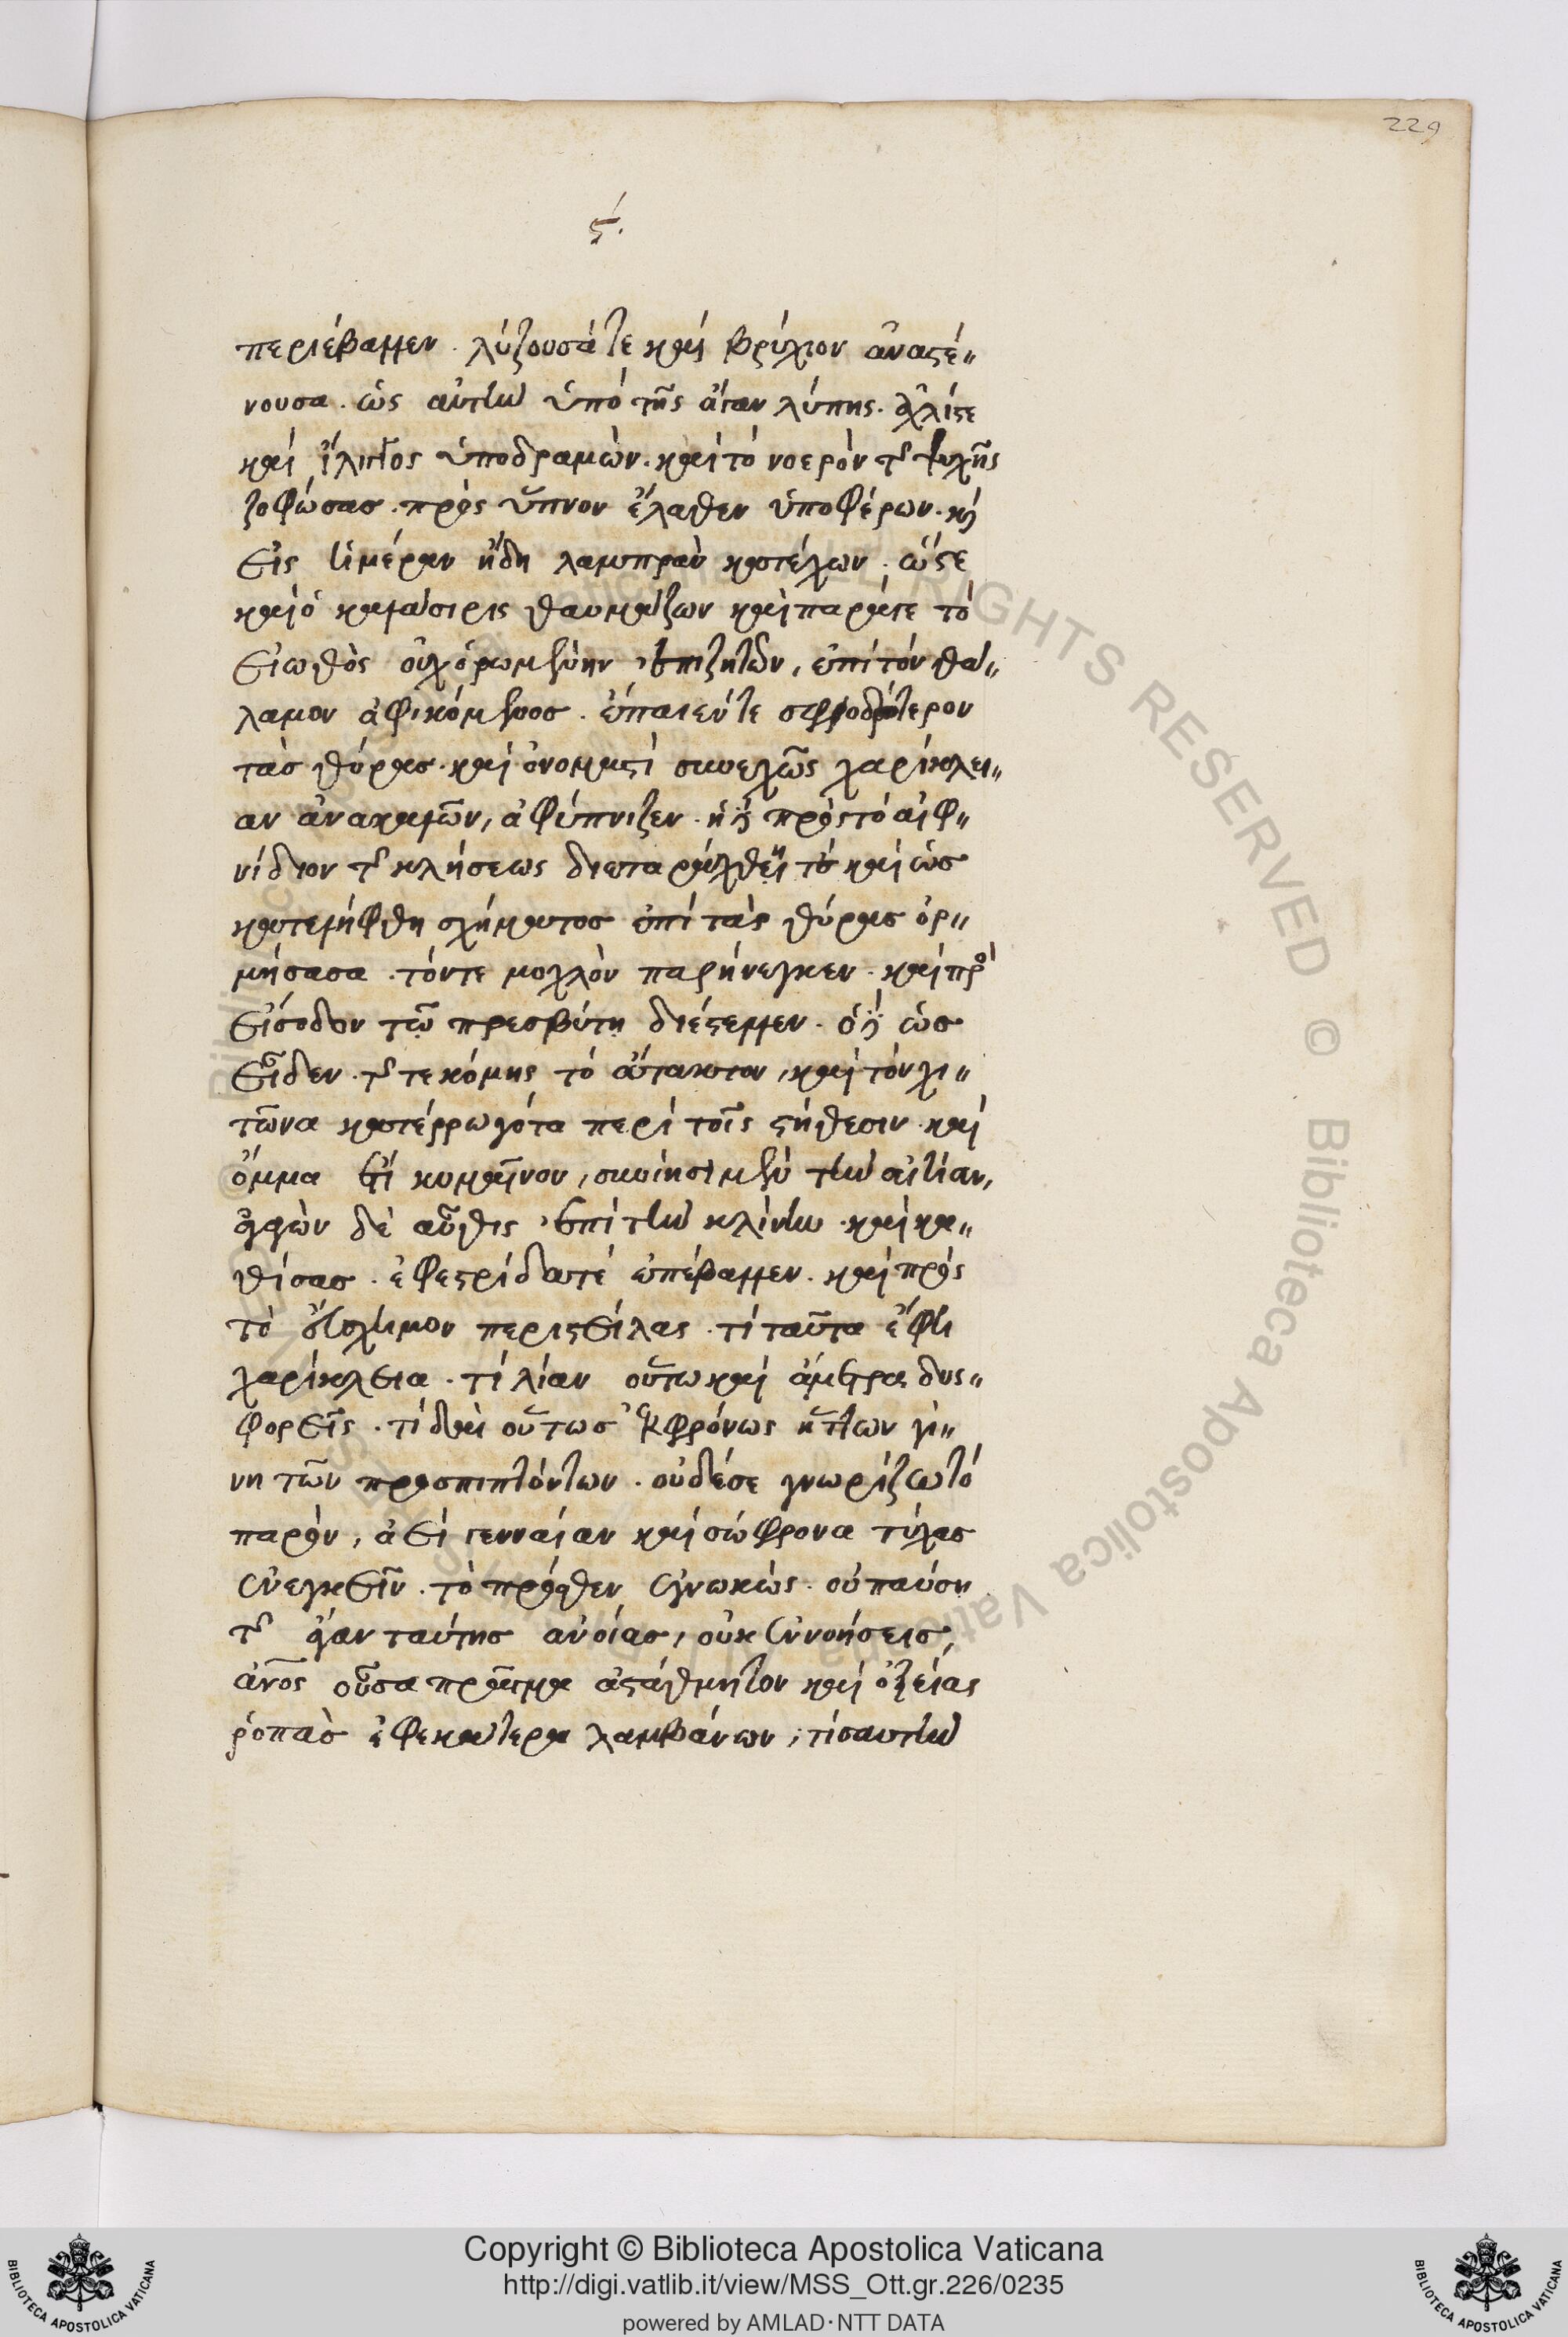 229
ϛ΄.
περιέβαλλεν. λύζουσά τε καὶ βρύχιον ἀναστέ-
νουσα. ὡς αὐτὴν ὑπὸ τῆς ἄγαν λύπης. ἀχλύς τε
καὶ ἴλιγγος ὑποδραμὼν. καὶ τὸ νοερὸν τῆς ψυχῆς
ζοφώσας. πρὸς ὕπνον ἔλαθεν ὑποφέρων. καὶ
εἰς ἡμέραν ἤδη λαμπρὰν κατέχων. ὥστε
καὶ ὁ καλάσιρις θαυμάζων καὶ παρά τε τὸ
εἰωθὸς οὐχ ὁρωμένην ἐπιζητῶν, ἐπὶ τὸν θά-
λαμον ἀφικόμενος. ἔπαιέν τε σφοδρότερον
τὰς θύρας. καὶ ὀνομαστὶ συνεχῶς χαρίκλει-
αν ἀνακαλῶν, ἀφύπνιζεν. ἡ δὲ πρὸς τὸ αἰφ-
νίδιον τῆς κλήσεως διεταράχθη τὲ καὶ ὡς
κατελήφθη σχήματος ἐπὶ τὰς θύρας ὁρ-
μήσασα. τόν τε μοχλὸν παρήνεγκεν. καὶ πρὸς
εἴσοδον τῷ πρεσβύτη διέστελλεν. ὁ δὲ ὡς
εἶδεν. τῆς τε κόμης τὸ ἄτακτον, καὶ τὸν χι-
τῶνα κατερρωγότα περὶ τοῖς στήθεσιν. καὶ
ὄμμα ἔτι κυμαῖνον, συνίησι μὲν τὴν αἰτίαν,
ἀγαγὼν δὲ αὖθις ἐπὶ τὴν κλίνην. καὶ κα-
θίσας. ἐφεστρίδα τέ ἐπέβαλλεν. καὶ πρὸς
τὸ εὔσχημον περιστείλας. τί ταῦτα ἔφη
χαρίκλεια. τί λίαν οὕτω καὶ ἄμετρα δυσ-
φορεῖς. τί δαὶ οὕτως ἐκφρόνως ἥττων γί-
νη τῶν προσπιπτόντων. οὐδέ σε γνωρίζω τὸ
παρὸν, ἀεὶ γενναίαν καὶ σώφρονα τύχας
ἐνεγκεῖν. τὸ πρόσθεν ἐγνωκὼς. οὐ παύση
τῆς ἄγαν ταύτης ἀνοίας, οὐκ ἐννοήσεις,
ἄνος οὖσα πρᾶγμα ἀστάθμητον καὶ ὀξείας
ῥοπὰς ἐφ' ἑκάτερα λαμβάνων, τί σαυτὴν
Copyright © Biblioteca Apostolica Vaticana
http://digi.vatlib.it/view/MSS_Ott.gr.226/0235
powered by AMLAD·NTT DATA